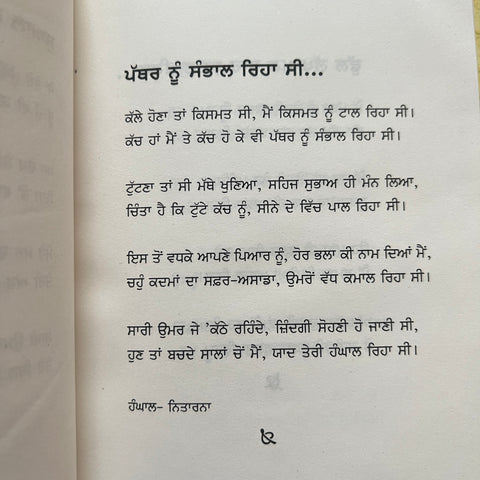 ਪੱਥਰ ਨੂੰ ਸੰਭਾਲ ਰਿਹਾ ਸੀ...
ਕੱਲੇ ਹੋਣਾ ਤਾਂ ਕਿਸਮਤ ਸੀ, ਮੈਂ ਕਿਸਮਤ ਨੂੰ ਟਾਲ ਰਿਹਾ ਸੀ।
ਕੱਚ ਹਾਂ ਮੈਂ ਤੇ ਕੱਚ ਹੋ ਕੇ ਵੀ ਪੱਥਰ ਨੂੰ ਸੰਭਾਲ ਰਿਹਾ ਸੀ।
ਟੁੱਟਣਾ ਤਾਂ ਸੀ ਮੱਥੇ ਖੁਣਿਆ, ਸਹਿਜ ਸੁਭਾਅ ਹੀ ਮੰਨ ਲਿਆ,
ਚਿੰਤਾ ਹੈ ਕਿ ਟੁੱਟੇ ਕੱਚ ਨੂੰ, ਸੀਨੇ ਦੇ ਵਿੱਚ ਪਾਲ ਰਿਹਾ ਸੀ।
ਇਸ ਤੋਂ ਵਧਕੇ ਆਪਣੇ ਪਿਆਰ ਨੂੰ, ਹੋਰ ਭਲਾ ਕੀ ਨਾਮ ਦਿਆਂ ਮੈਂ,
ਚਹੁੰ ਕਦਮਾਂ ਦਾ ਸਫ਼ਰ-ਅਸਾਡਾ, ਉਮਰੋਂ ਵੱਧ ਕਮਾਲ ਰਿਹਾ ਸੀ।
ਸਾਰੀ ਉਮਰ ਜੇ 'ਕੱਠੇ ਰਹਿੰਦੇ, ਜ਼ਿੰਦਗੀ ਸੋਹਣੀ ਹੋ ਜਾਣੀ ਸੀ,
ਹੁਣ ਤਾਂ ਬਚਦੇ ਸਾਲਾਂ ਚੋਂ ਮੈਂ, ਯਾਦ ਤੇਰੀ ਹੰਘਾਲ ਰਿਹਾ ਸੀ।
ਹੰਘਾਲ- ਨਿਤਾਰਨਾ